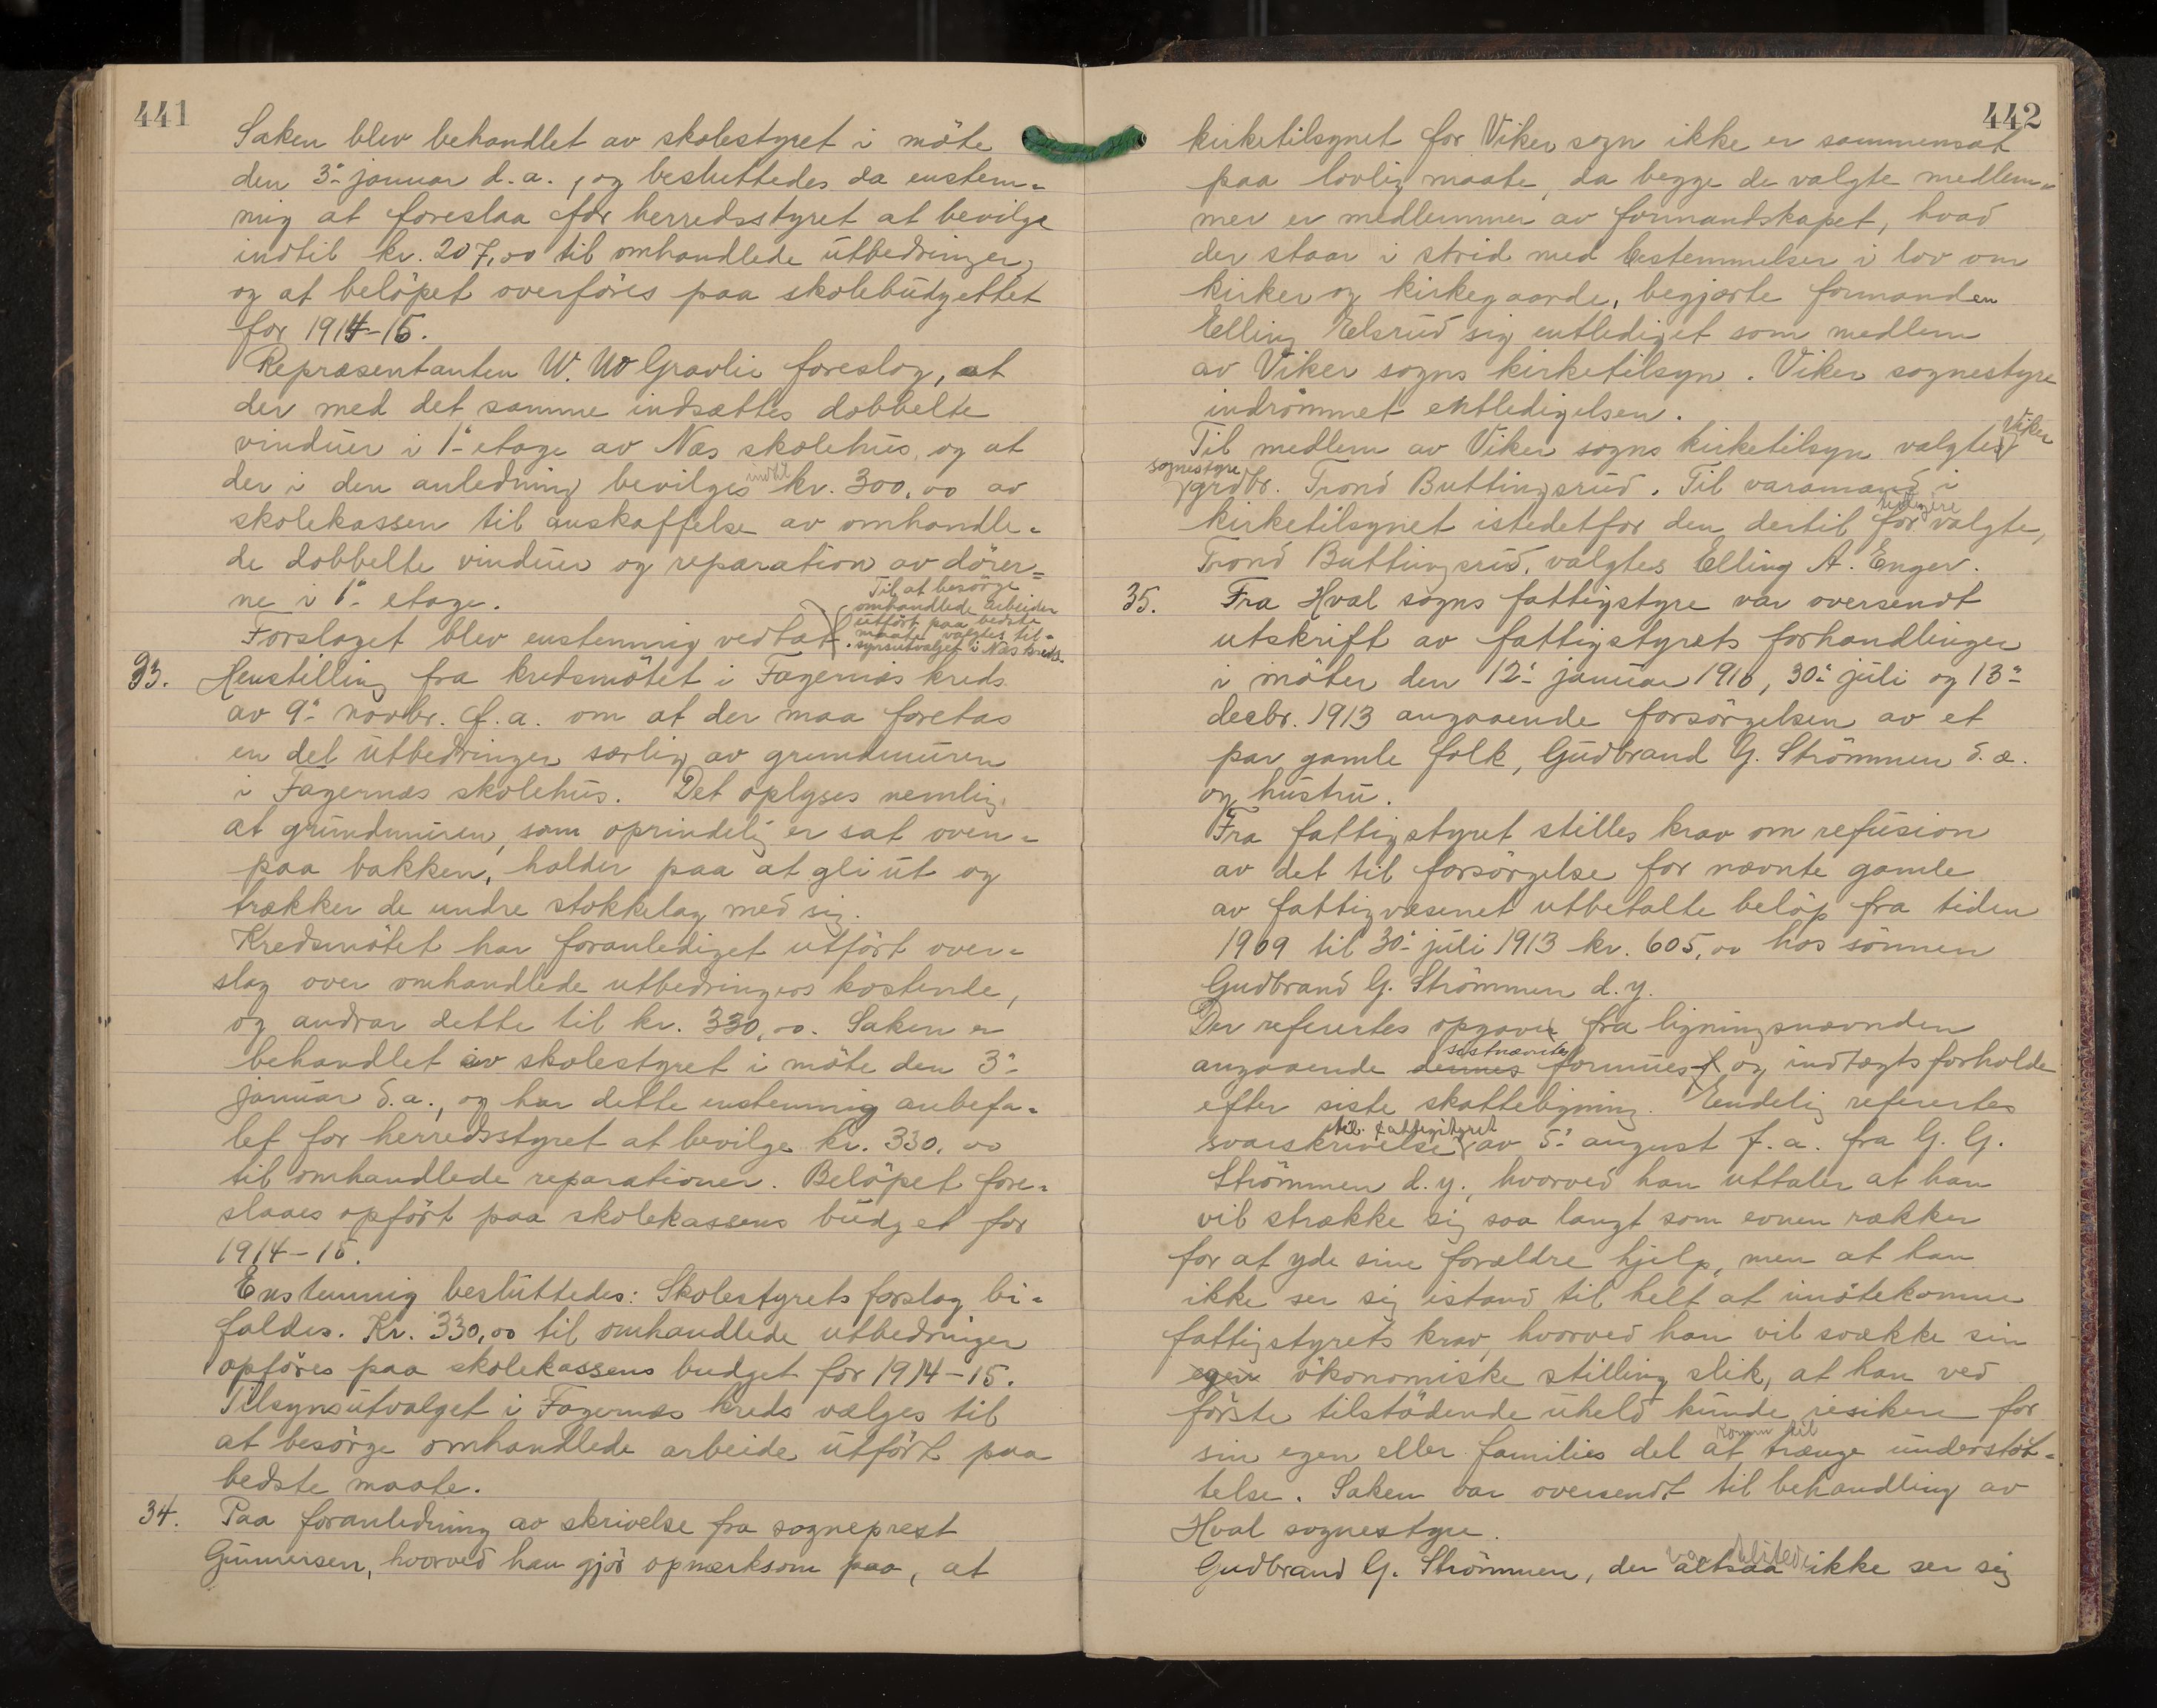 441
Saken blev behandlet av skolestyret i möte
den 3'- januar d.a., og besluttedes da enstem-
mig at foreslaa for herredsstyret at bevilge
indtil kr. 207,00 til omhandlede utbedringer,
og at belöpet overföres paa skolebudgettet
for 1914-15.
Repræsentanten W. Gravlie foreslog, at
der med det samme indsættes dobbelte
vinduer i 1'- etage av Næs skolehus, og at
der i den anledning bevilges indtil kr. 300,00 av
skolekassen til anskaffelse av omhandle-
de dobbelte vinduer og reparation av dörer-
ne i 1'- etage.
Forslaget blev enstemmig vedtat. Til at besörge
omhandlede arbeider
utfört paa bedste
maate valgtes til-
synsutvalget i Næs kreds.
33. Henstilling fra kredsmötet i Fagernæs kreds
av 9'- novbr. f.a. om at der maa foretas
en del utbedringer særlig av grundmuren
i Fagernæs skolehus. Det oplyses nemlig,
at grundmuren, som oprindelig er sat oven-
paa bakken, holder paa at gli ut og
trækker de undre stokkelag med sig.
Kredsmötet har foranlediget utfört over-
slag over omhandlede utbedringers kostende,
og andrar dette til kr. 330,00. Saken er
behandlet av skolestyret i möte den 3'-
januar d.a., og har dette enstemmig anbefa-
let for herredsstyret at bevilge kr. 330,00
til omhandlede reparationer. Belöpet fore-
slaaes opfört paa skolekassens budget for
1914-15.
Enstemmig besluttedes: Skolestyrets forslag bi-
faldes. Kr. 330,00 til omhandlede utbedringer
opföres paa skolekassens budget for 1914-15.
Tilsynsutvalget i Fagernæs kreds vælges til
at besörge omhandlede arbeide utfört paa
bedste maate.
34. Paa foranledning av skrivelse fra sogneprest
Gunnersen, hvorved han gjör opmerksom paa, at
442
kirketilsynet for Viker sogn ikke er sammensat
paa lovlig maate, da begge de valgte medlem-
mer er medlemmer av formandskapet, hvad
der staar i strid med bestemmelser i lov om
kirker og kirkegaarde, begjærte formanden
Elling Elsrud sig entlediget som medlem
av Viker sogns kirketilsyn. Viker sognestyre
indrömmet entledigelsen.
Til medlem av Viker sogns kirketilsyn valgtes Viker
sognestyre grdbr. Trond Buttingsrud. Til varamand i
kirketilsynet istedetfor den dertil tidligere for valgte,
Trond Buttingsrud, valgtes Elling A. Enger.
35. Fra Hval sogns fattigstyre var oversendt
utskrift av fattigstyrets forhandlinger
i möter den 12'- januar 1910, 30'- juli og 13'-
decbr. 1913 angaaende forsörgelsen av et
par gamle folk, Gudbrand G. Strömmen d.æ.
og hustru.
Fra fattigstyret stilles krav om refusion
av det til forsörgelse for nævnte gamle
av fattigvæsenet utbetalte belöp fra tiden
1909 til 30'- juli 1913 kr. 605,00 hos sönnen
Gudbrand G. Strömmen d.y.
Der refertes opgave fra ligningsnævnden
angaaende dennes sistnævntes formues- og indtægtsforholde
efter siste skatteligning. Endelig refertes
svarskrivelse til fattigstyret av 5'- august f.a. fra G. G.
Strömmen d.y., hvorved han uttaler at han
vil strække sig saa langt som evnen rækker
for at yde sine forældre hjelp, men at han
ikke ser sig istand til helt at imötekomme
fattigstyrets krav, hvorved han vil svække sin
egen ökonomiske stilling slik, at han ved
förste tilstödende uheld kunde risikere for
sin egen eller families del at komme til trænge understöt-
telse. Saken var oversendt til behandling av
Hval sognestyre.
Gudbrand G. Strömmen, der altsaa ikke ser sig